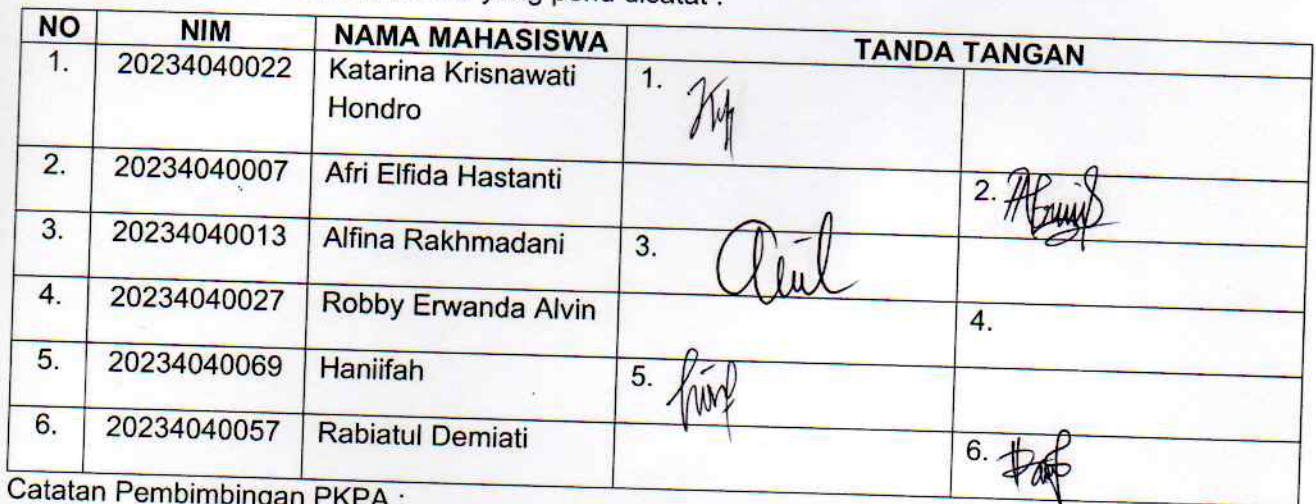 yang perlu dicatat :
NO NIM NAMA MAHASISWA TANDA TANGAN
1. 20234040022 Katarina Krisnawati 1.
Hondro
2. 20234040007 Afri Elfida Hastanti 2.
3. 20234040013 Alfina Rakhmadani 3.
4. 20234040027 Robby Erwanda Alvin 4.
5. 20234040069 Haniifah 5.
6. 20234040057 Rabiatul Demiati 6.
Catatan Pembimbingan PKPA :